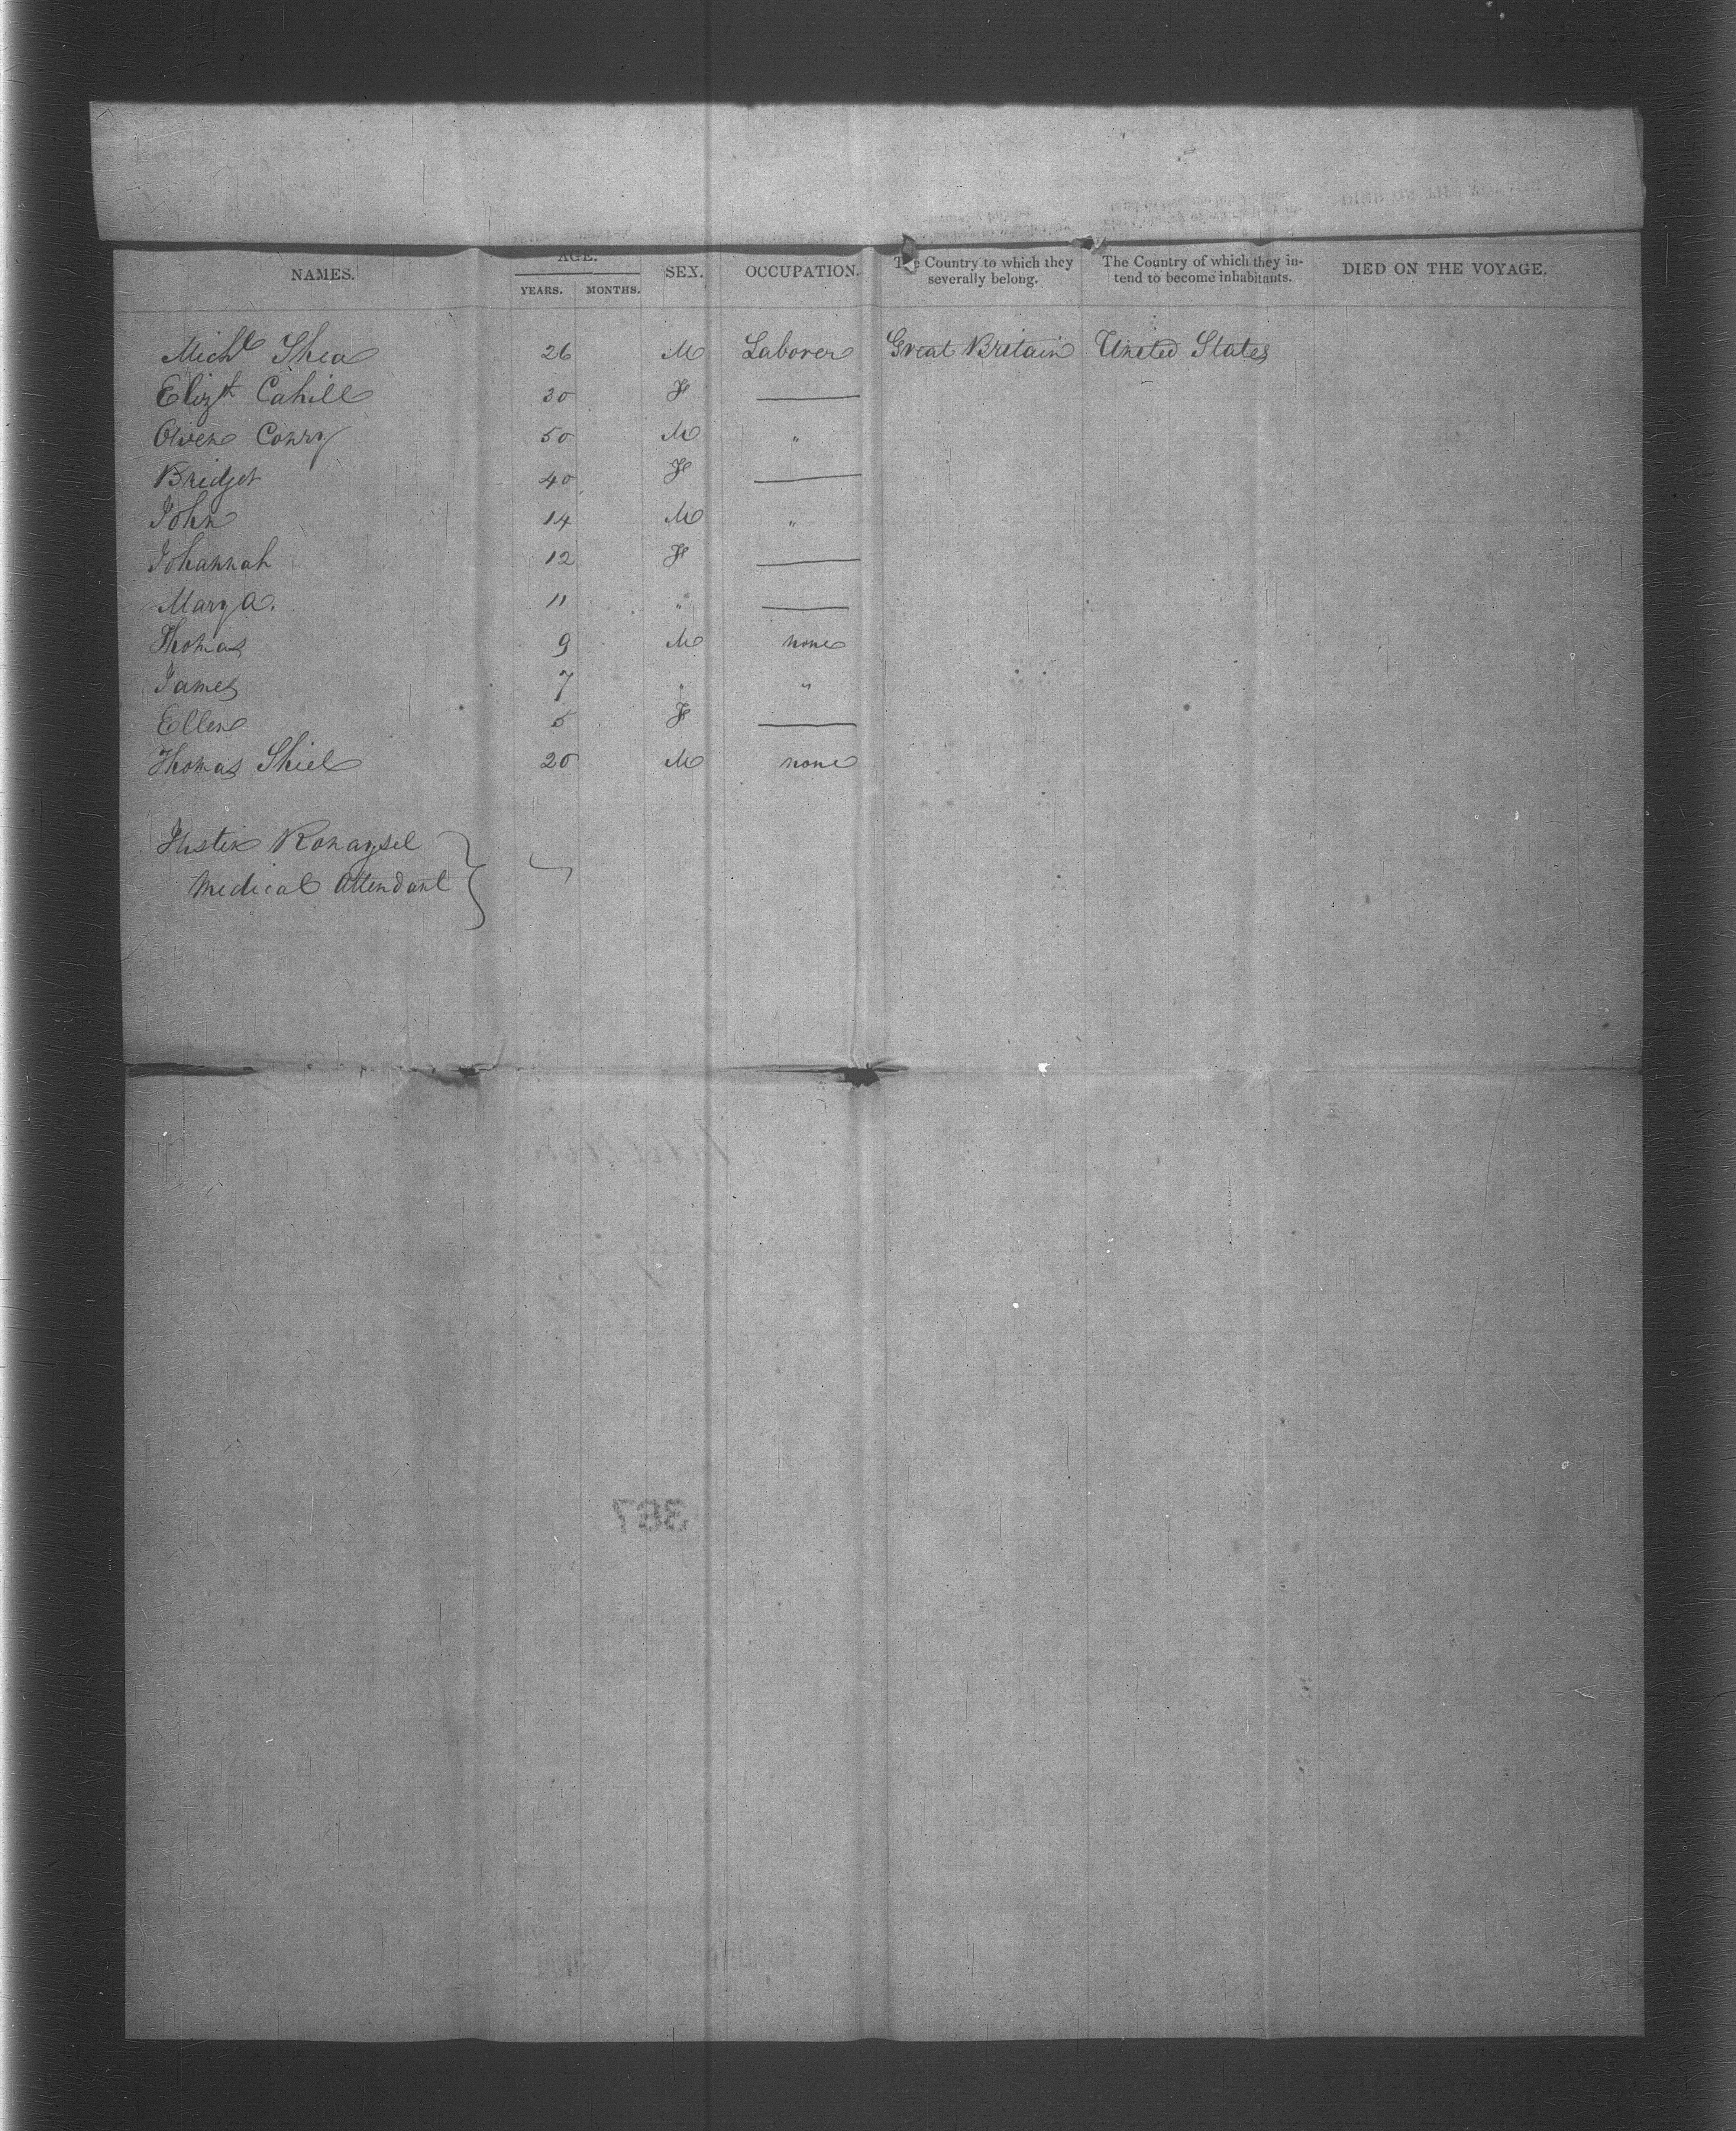 NAMES. AGE. SEX. OCCUPATION. The Country to which they severally belong. The Country of which they intend to become inhabitants. DIED ON THE VOYAGE.
YEARS. MONTHS.
Michl Shea 26 M Laborer Great Britain United States
Elizth Cahill 30 F ——
Owen Conry 50 M "
Bridget 40 F ——
John 14 M "
Johannah 12 F ——
Mary A. 11 " ——
Thomas 9 M none
James 7 " "
Ellen 5 F ——
Thomas Shiel 20 M none
Justin
Medical Attendant
387